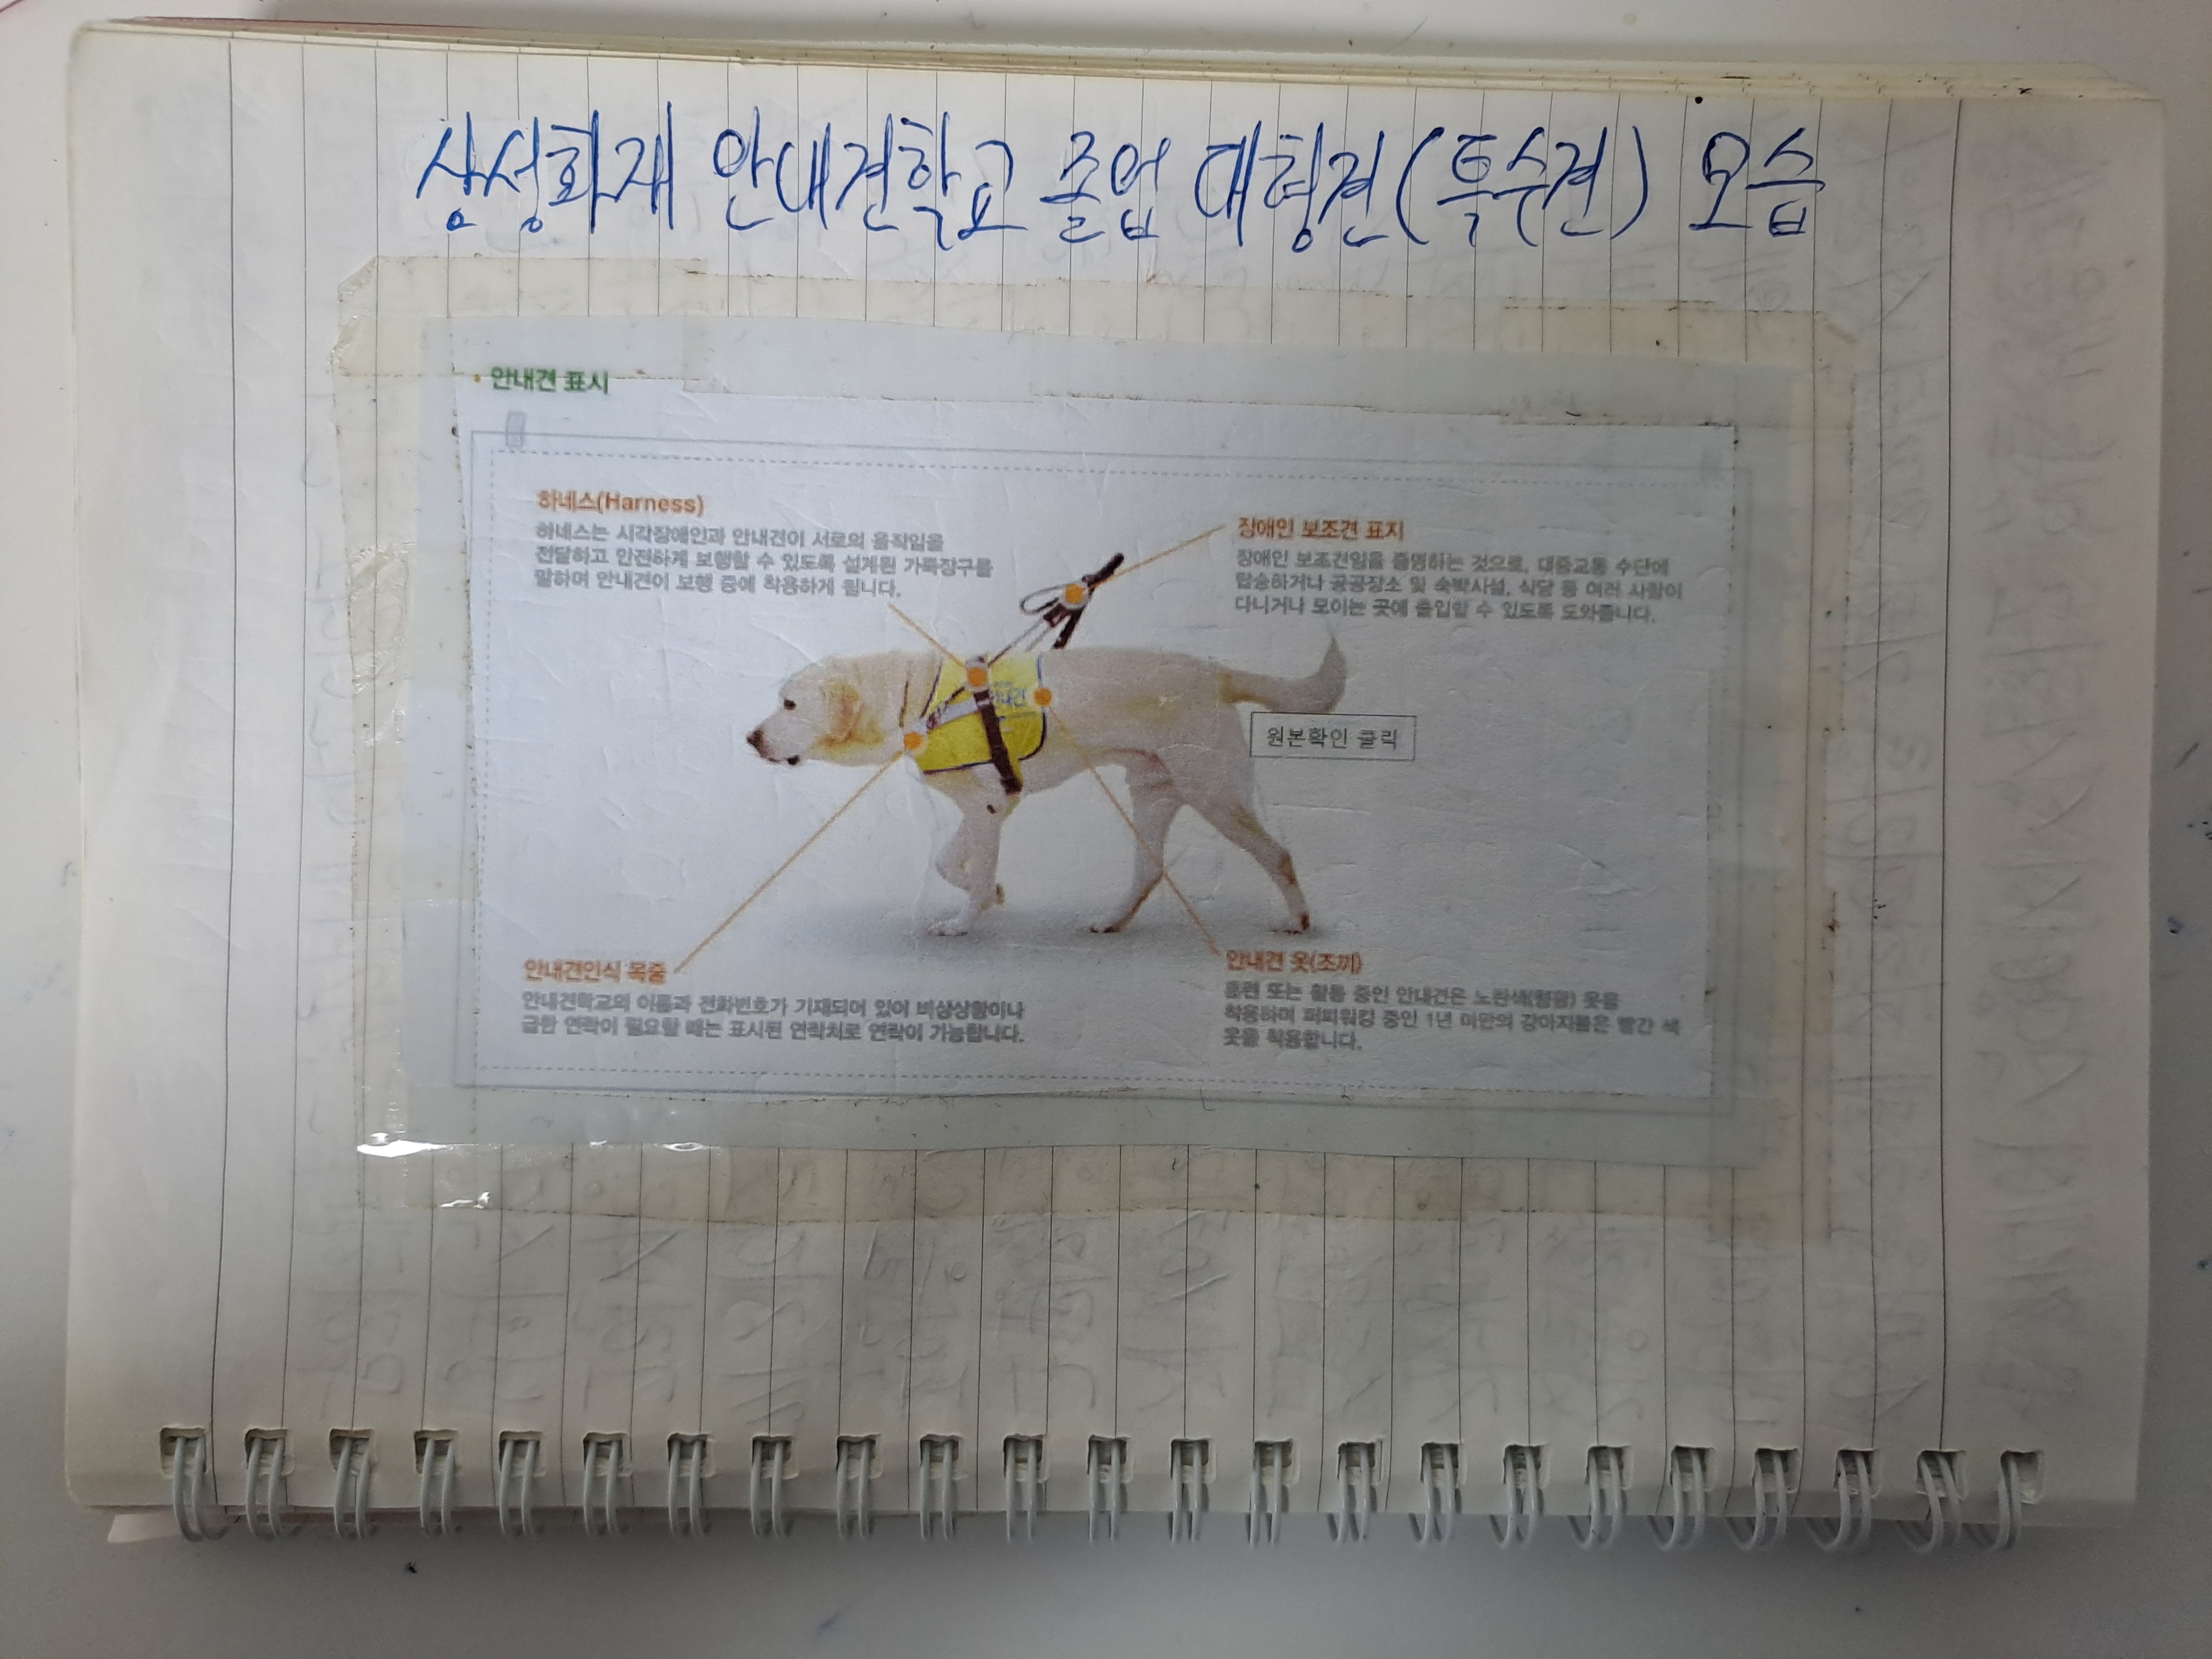 삼성화재 안내견학교 졸업 대형견(특수견) 모습
· 안내견 표시
하네스(Harness)
하네스는 시각장애인과 안내견이 서로의 움직임을
전달하고 안전하게 보행할 수 있도록 설계된 가죽장구를
말하며 안내견이 보행 중에 착용하게 됩니다.
장애인 보조견 표지
장애인 보조견임을 증명하는 것으로, 대중교통 수단에
탑승하거나 공공장소 및 숙박시설, 식당 등 여러 사람이
다니거나 모이는 곳에 출입할 수 있도록 도와줍니다.
안내견
원본확인 클릭
안내견인식 목줄
안내견학교의 이름과 전화번호가 기재되어 있어 비상상황이나
급한 연락이 필요할 때는 표시된 연락처로 연락이 가능합니다.
안내견 옷(조끼)
훈련 또는 활동 중인 안내견은 노란색(형광) 옷을
착용하며 퍼피워킹 중인 1년 미만의 강아지들은 빨간 색
옷을 착용합니다.